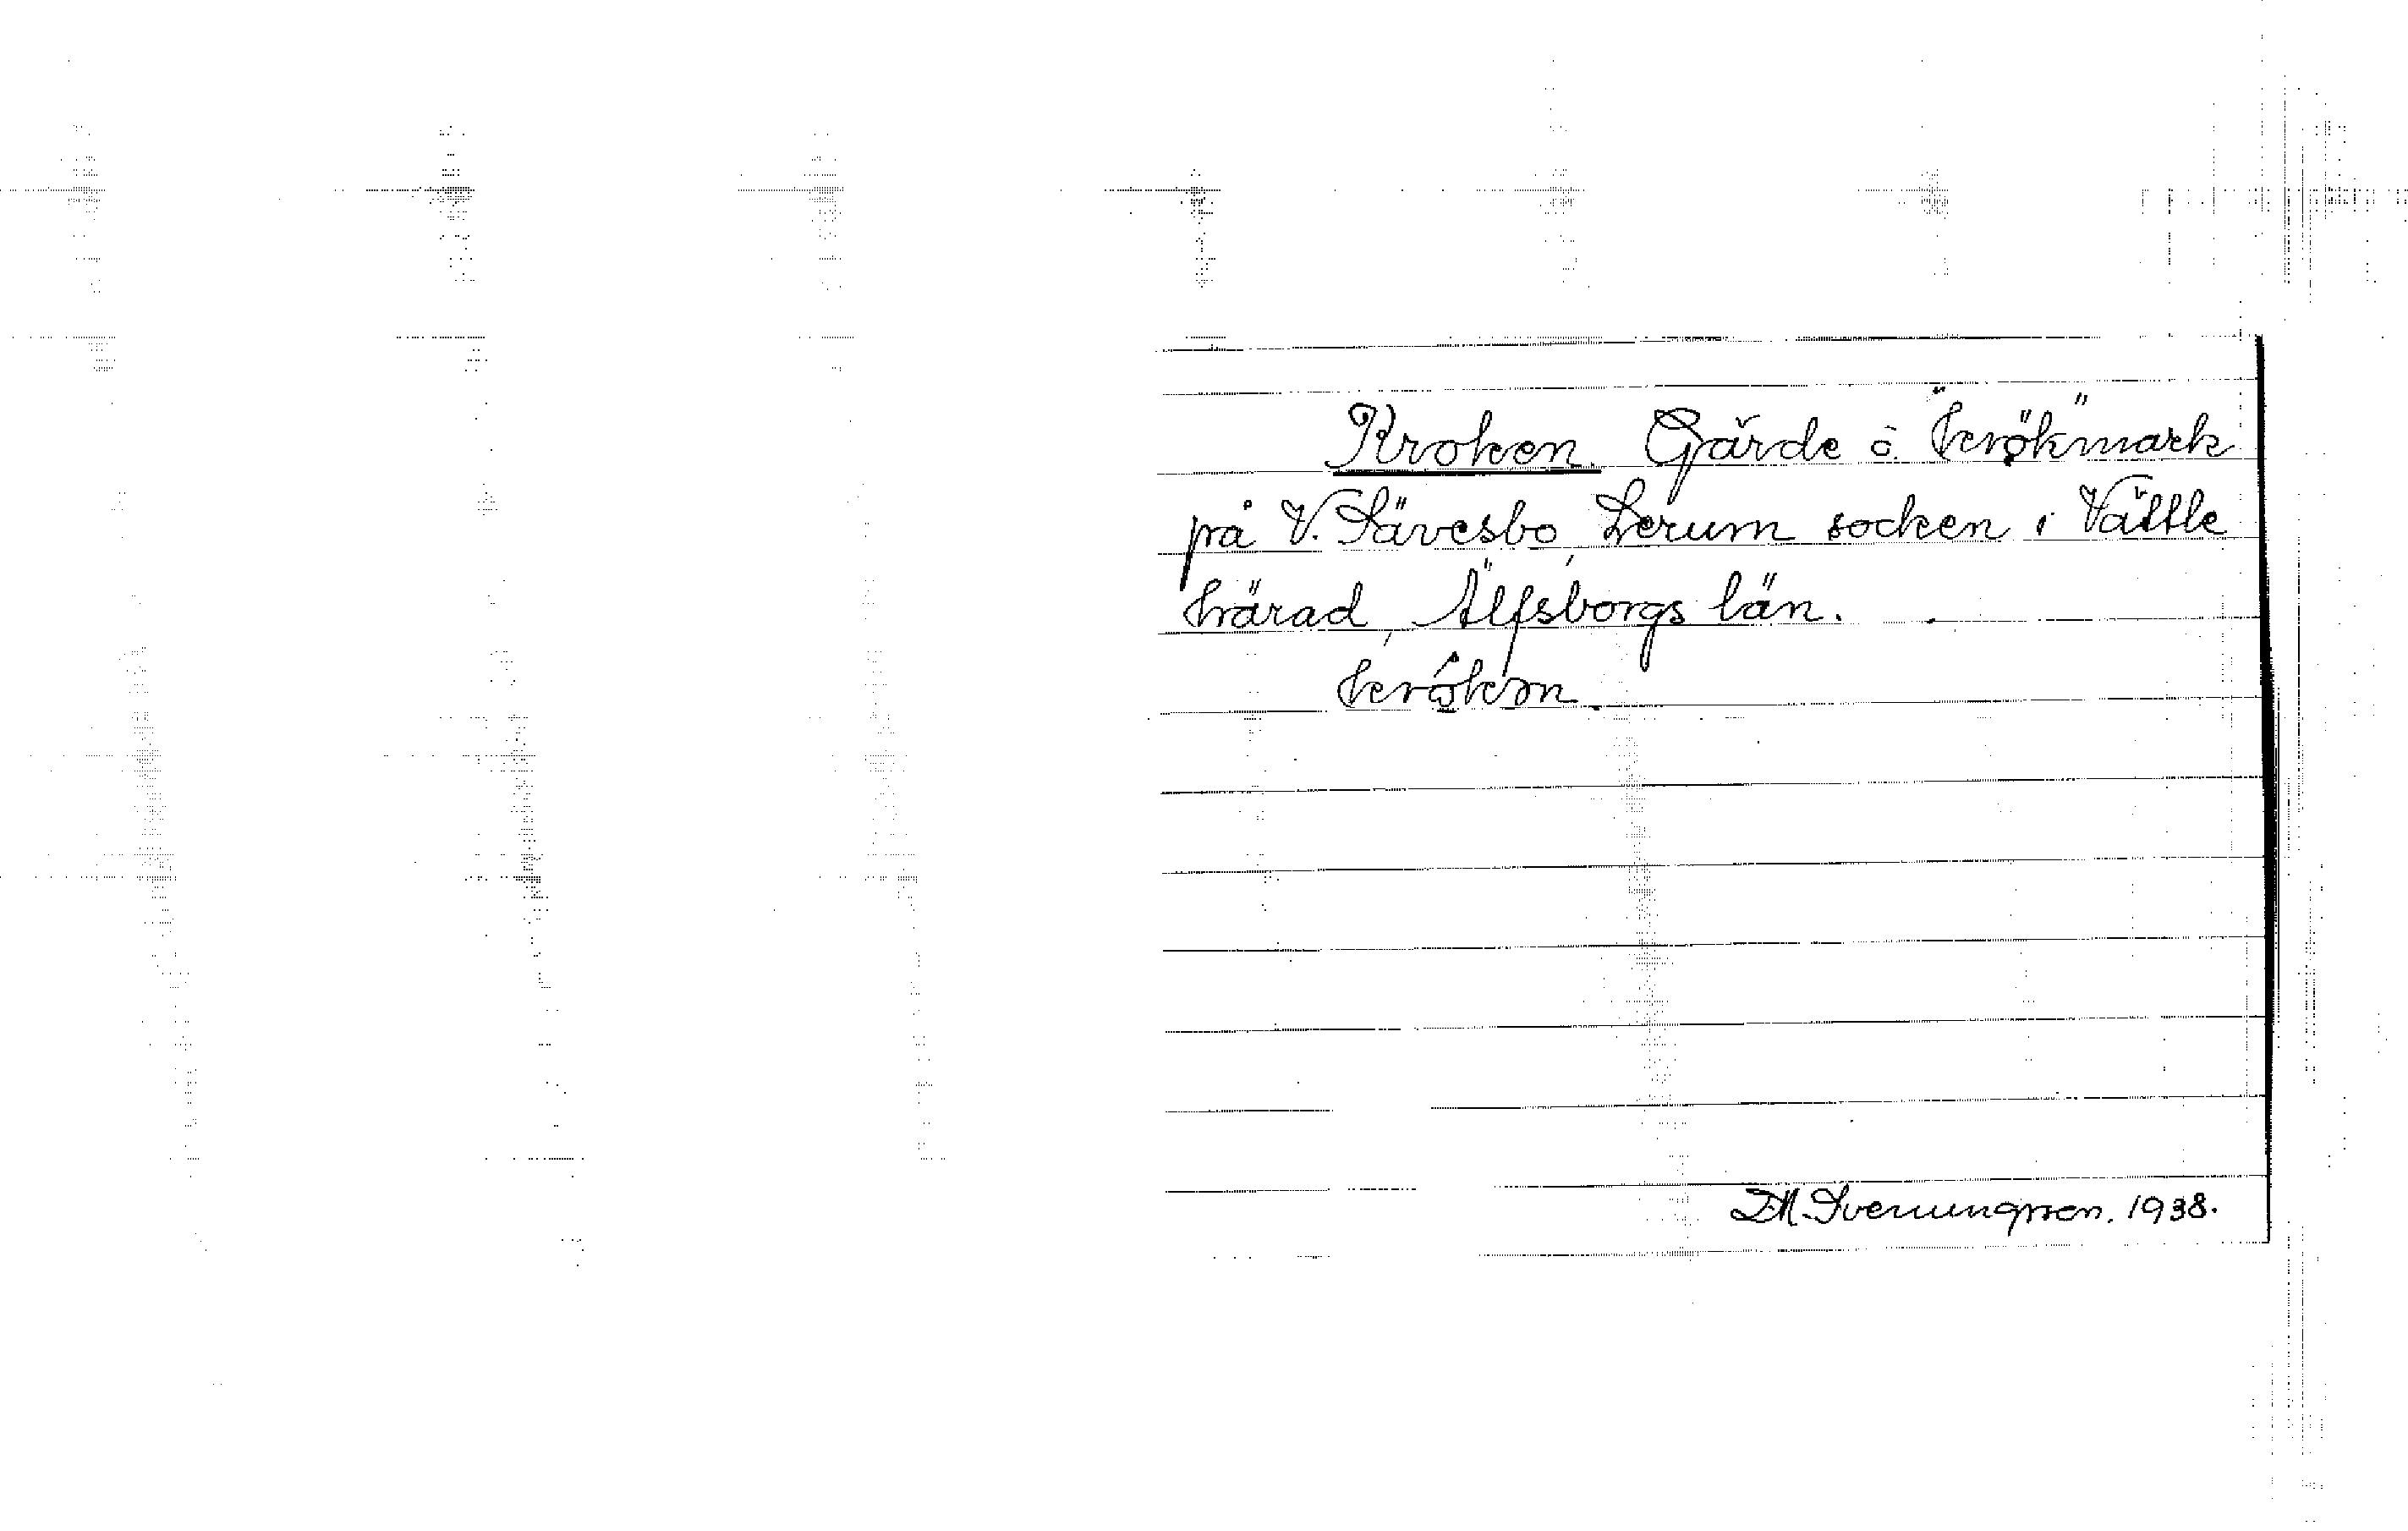 Kroken. Gärde o. "krökmark"
på V. Sävesbo, Lerum socken i Vättle
härad, Älfsborgs län.
krókən
D.M. Svenungsson. 1938.